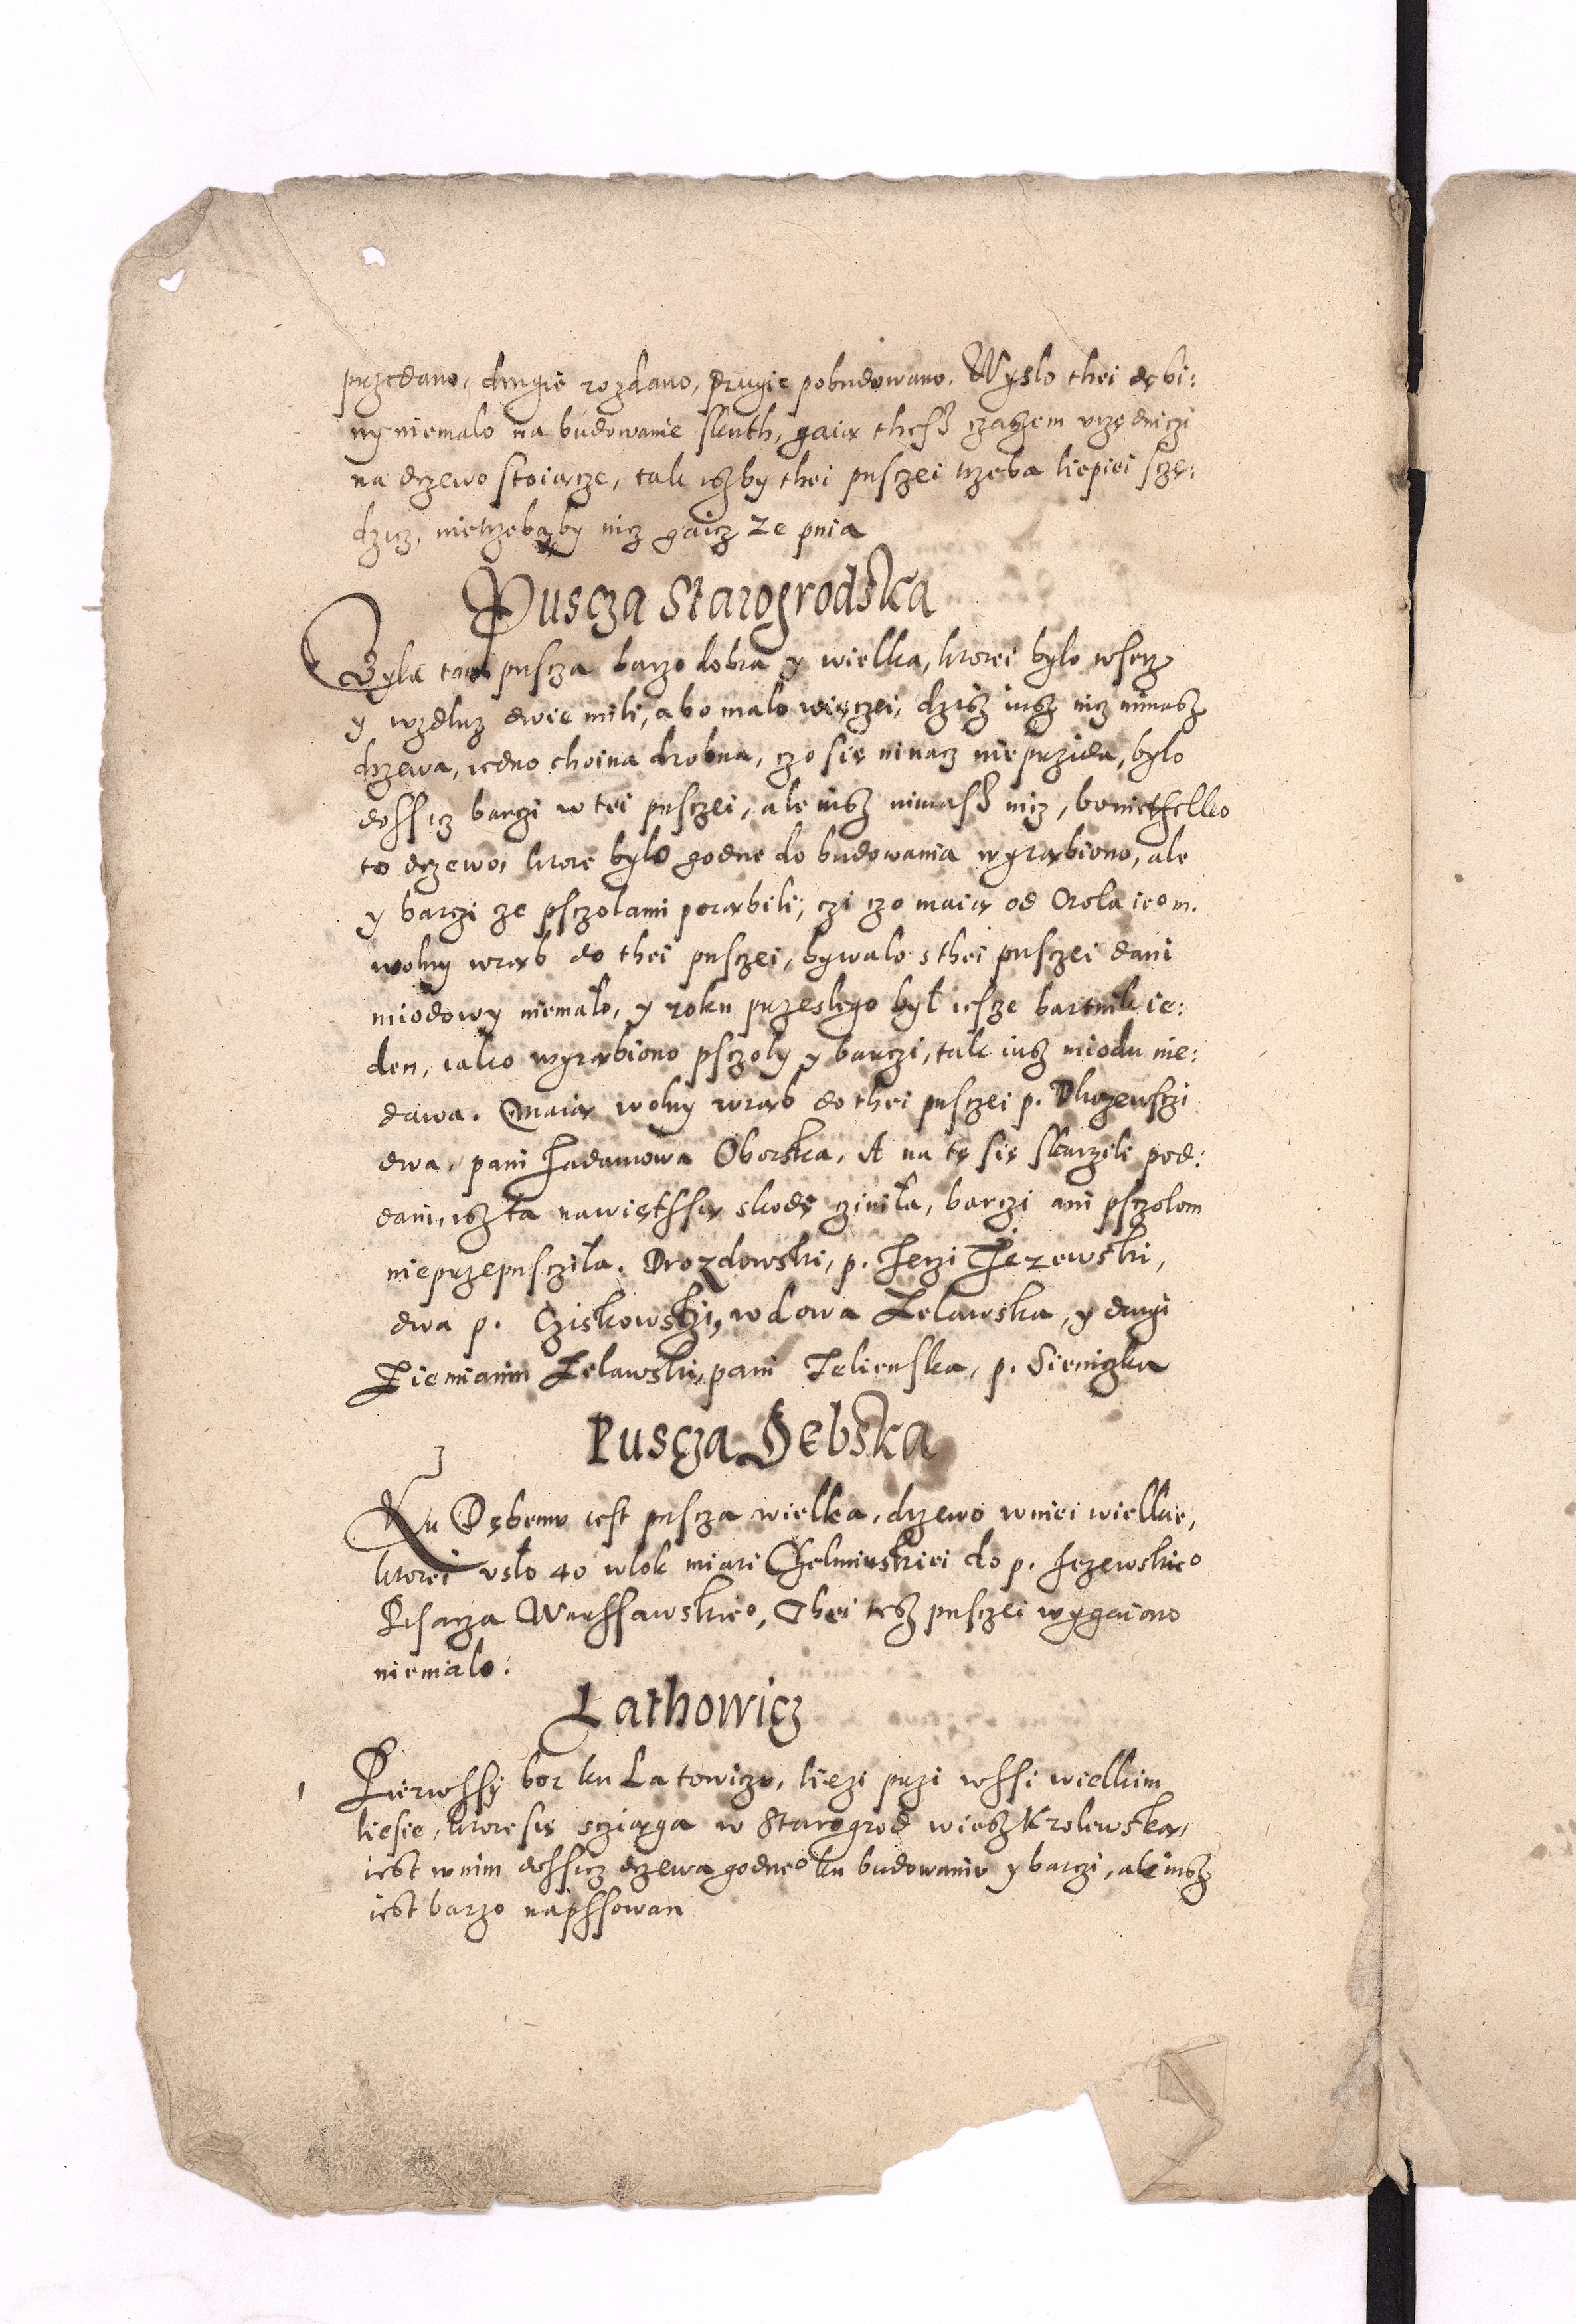 przedano, drugie rozdano, drugie pobudowano. Wyslo thei dębi:
ny niemalo na budowanie skuth, gaią thesz czasem vrzędniczi
na drzewo stoiącze, tak iszby thei pusczei trzeba liepiei sczę:
dzicz, nietrzebaby nicz gaicz ze pnia
Puscza Starogrodska
Byla tam puscza barzo dobra y wielka, ktorei bylo wserz
y wzdluz dwie mili, abo malo więczei, dzisz iusz nicz nimasz
drzewa, iedno choina drobna, czo się ninacz nieprzida, bylo
dossicz barczi w tei pusczei, ale iusz nimasz nicz, bo niethelko
to drzewo, ktore bylo godne do budowania wyrąbiono, ale
y barczi ze psczolami porąbili, czi czo maią od Krola ieom.
wolny wrąb do thei pusczei, bywalo s thei pusczei dani
miodowy niemalo, y roku przeslego był iescze bartnik ie:
den, iako wyrąbiono psczoly y barczi, tak iusz miodu nie:
dawa. Maią wolny wrąb do thei pusczei p. Dluzewsczi
dwa, pani Jadamowa Oborska, A na tę się skarzili pod:
dani, isz ta nawiethsą skodę cziniła, barczi ani psczolom
nieprzepusczila. Drozdowski, p. Jerzi Jezewski,
dwa p. Cziskowsczi, wdowa Zelawska, y drugi
Ziemianin Zelawski, pani Jelienska, p. Sieniczka
Puscza Dębska
3
Ku Dębemu iest puscza wielka, drzewo wniei wielkie,
ktorei vsło 40 wlok miari Chelminskiei do p. Jezewskieo
Pisarza Warssawskieo, Thei tesz pusczei wygaiono
niemalo.
Lathowicz
1 Pierwssy bor ku Latowiczu, liezi przi wssi wielkim
liesie, ktore się scziąga w Starogrod wiesz Krolewską,
iest wnim dossicz drzewa godneo ku budowaniu y barczi, ale iusz
iest barzo napssowan